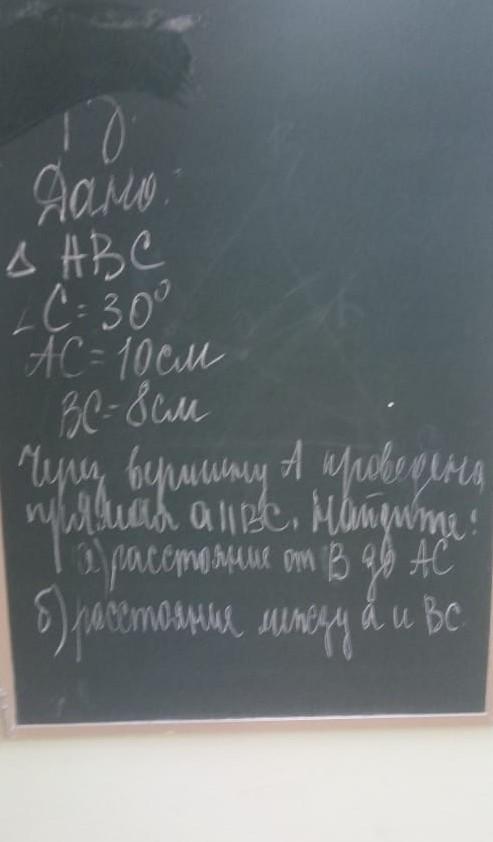 Дано:
Δ ABC
∠C = 30°
AC = 10см
BC = 8см
Через вершину A проведена
прямая a || BC. Найдите:
а) расстояние от B до AC
б) расстояние между a и BC